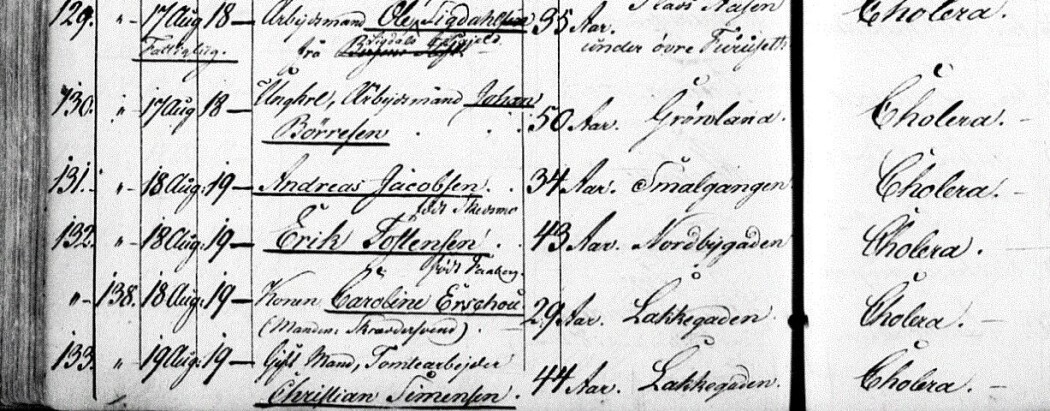 129. " 17 Aug 18 — Arbejdsmand Ole Sigdahlsen 35 Aar. Cholera.
Fattigbug. fra Sigdals under øvre Furuseth
130. " 17 Aug 18 — Ungkrl, Arbejdsmand Johan
Börresen 50 Aar. Grönland. Cholera. —
131. " 18 Aug: 19 — Andreas Jacobsen. 34 Aar. Smalgangen Cholera. —
født Skedsmo
132. " 18 Aug: 19 — Erik Tostensen. 43 Aar. Nordbygaden Cholera. —
født Faaberg.
" 138. 18 Aug: 19 — Konen Caroline Erschou 29 Aar. Lakkegaden Cholera. —
(Manden Skrædersvend)
133. " 19 Aug: 19 — Gift Mand, Tomtearbejder
Christian Simensen 44 Aar. Lakkegaden. Cholera. —